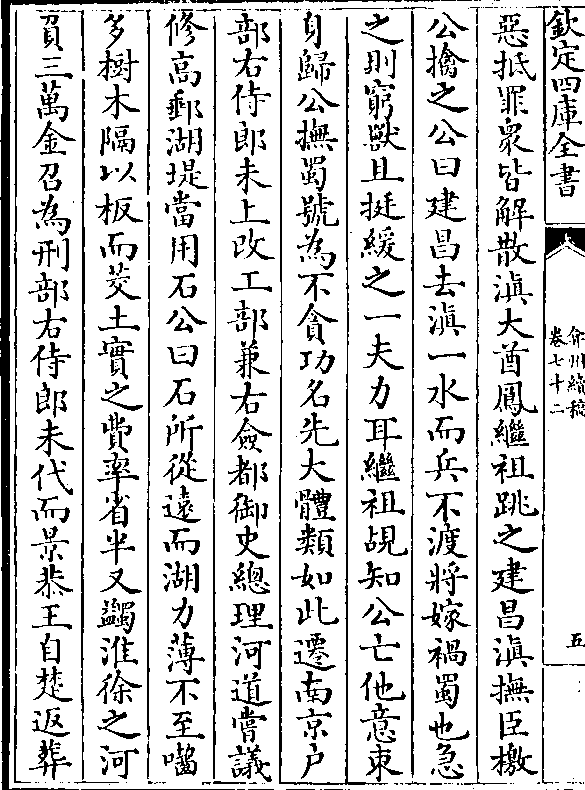 欽定四庫全書
弇州續稿
卷七十二
五
惡抵罪衆皆解散滇大酋鳳繼祖跳之建昌滇撫臣檄
公擒之公曰建昌去滇一水而兵不渡將嫁禍蜀也急
之則窮獸且挺緩之一夫力耳繼祖覘知公亡他意束
身歸公撫蜀號為不貪功名先大體類如此遷南京户
部右侍郎未上改工部兼右僉都御史總理河道嘗議
修高郵湖堤當用石公曰石所從遠而湖力薄不至囓
多樹木隔以板而茭土實之費率省半又蠲淮徐之河
負三萬金召為刑部右侍郎未代而景恭王自楚返葬